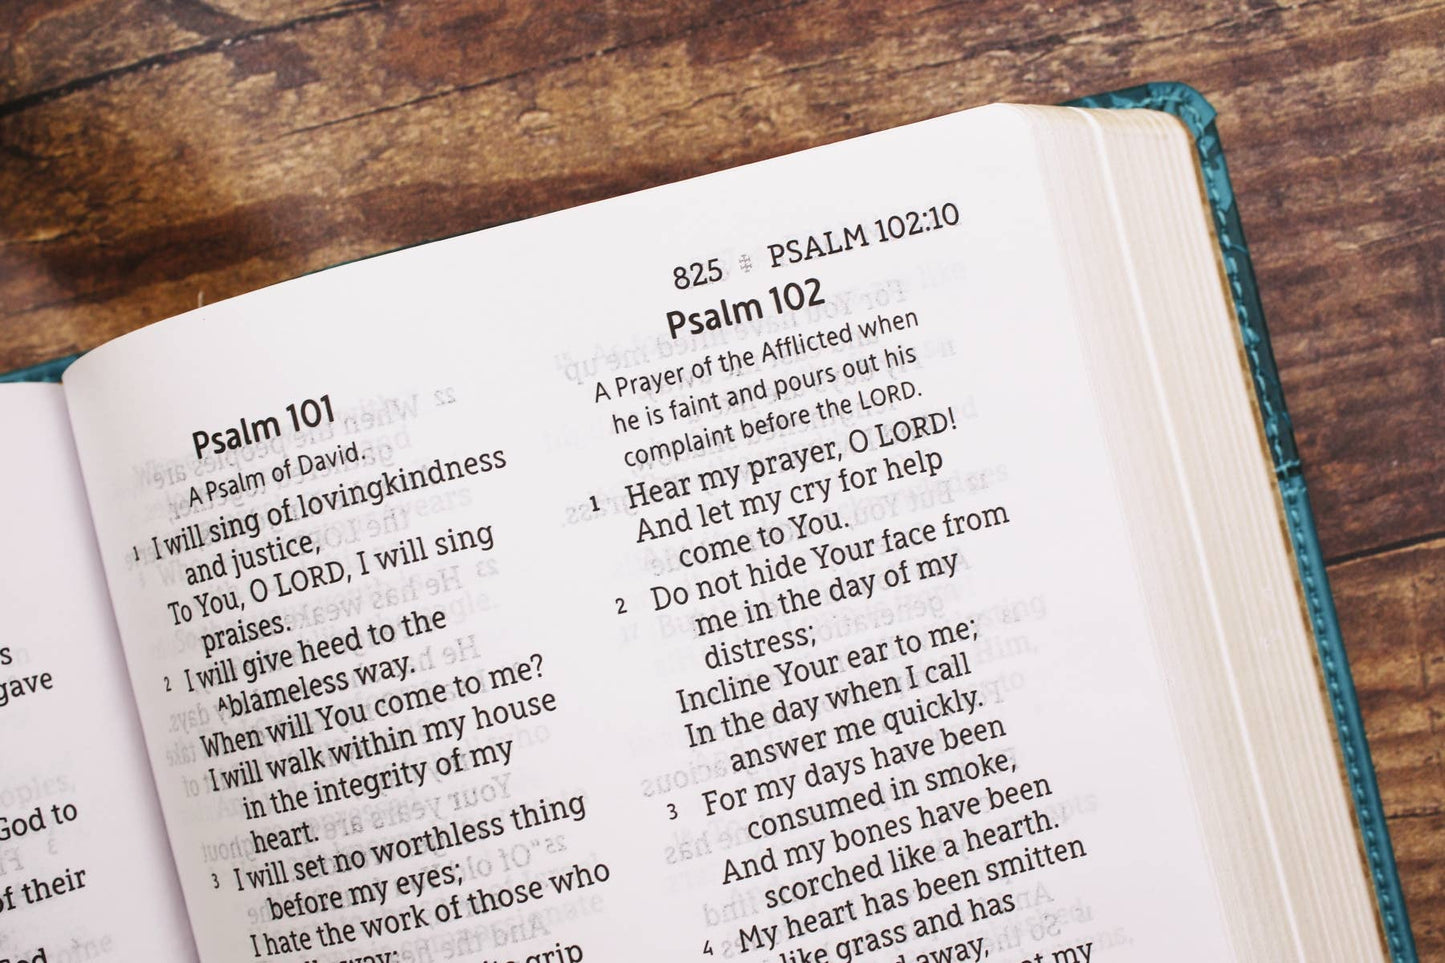 s
gave
God to
of their
825 ✠ PSALM 102:10
Psalm 101
A Psalm of David.
1 I will sing of lovingkindness
and justice,
To You, O LORD, I will sing
praises.
2 I will give heed to the
ᴬblameless way.
When will You come to me?
I will walk within my house
in the integrity of my
heart.
3 I will set no worthless thing
before my eyes;
I hate the work of those who
grip
Psalm 102
A Prayer of the Afflicted when
he is faint and pours out his
complaint before the LORD.
1 Hear my prayer, O LORD!
And let my cry for help
come to You.
2 Do not hide Your face from
me in the day of my
distress;
Incline Your ear to me;
In the day when I call
answer me quickly.
3 For my days have been
consumed in smoke,
And my bones have been
scorched like a hearth.
4 My heart has been smitten
like grass and has
away,
my